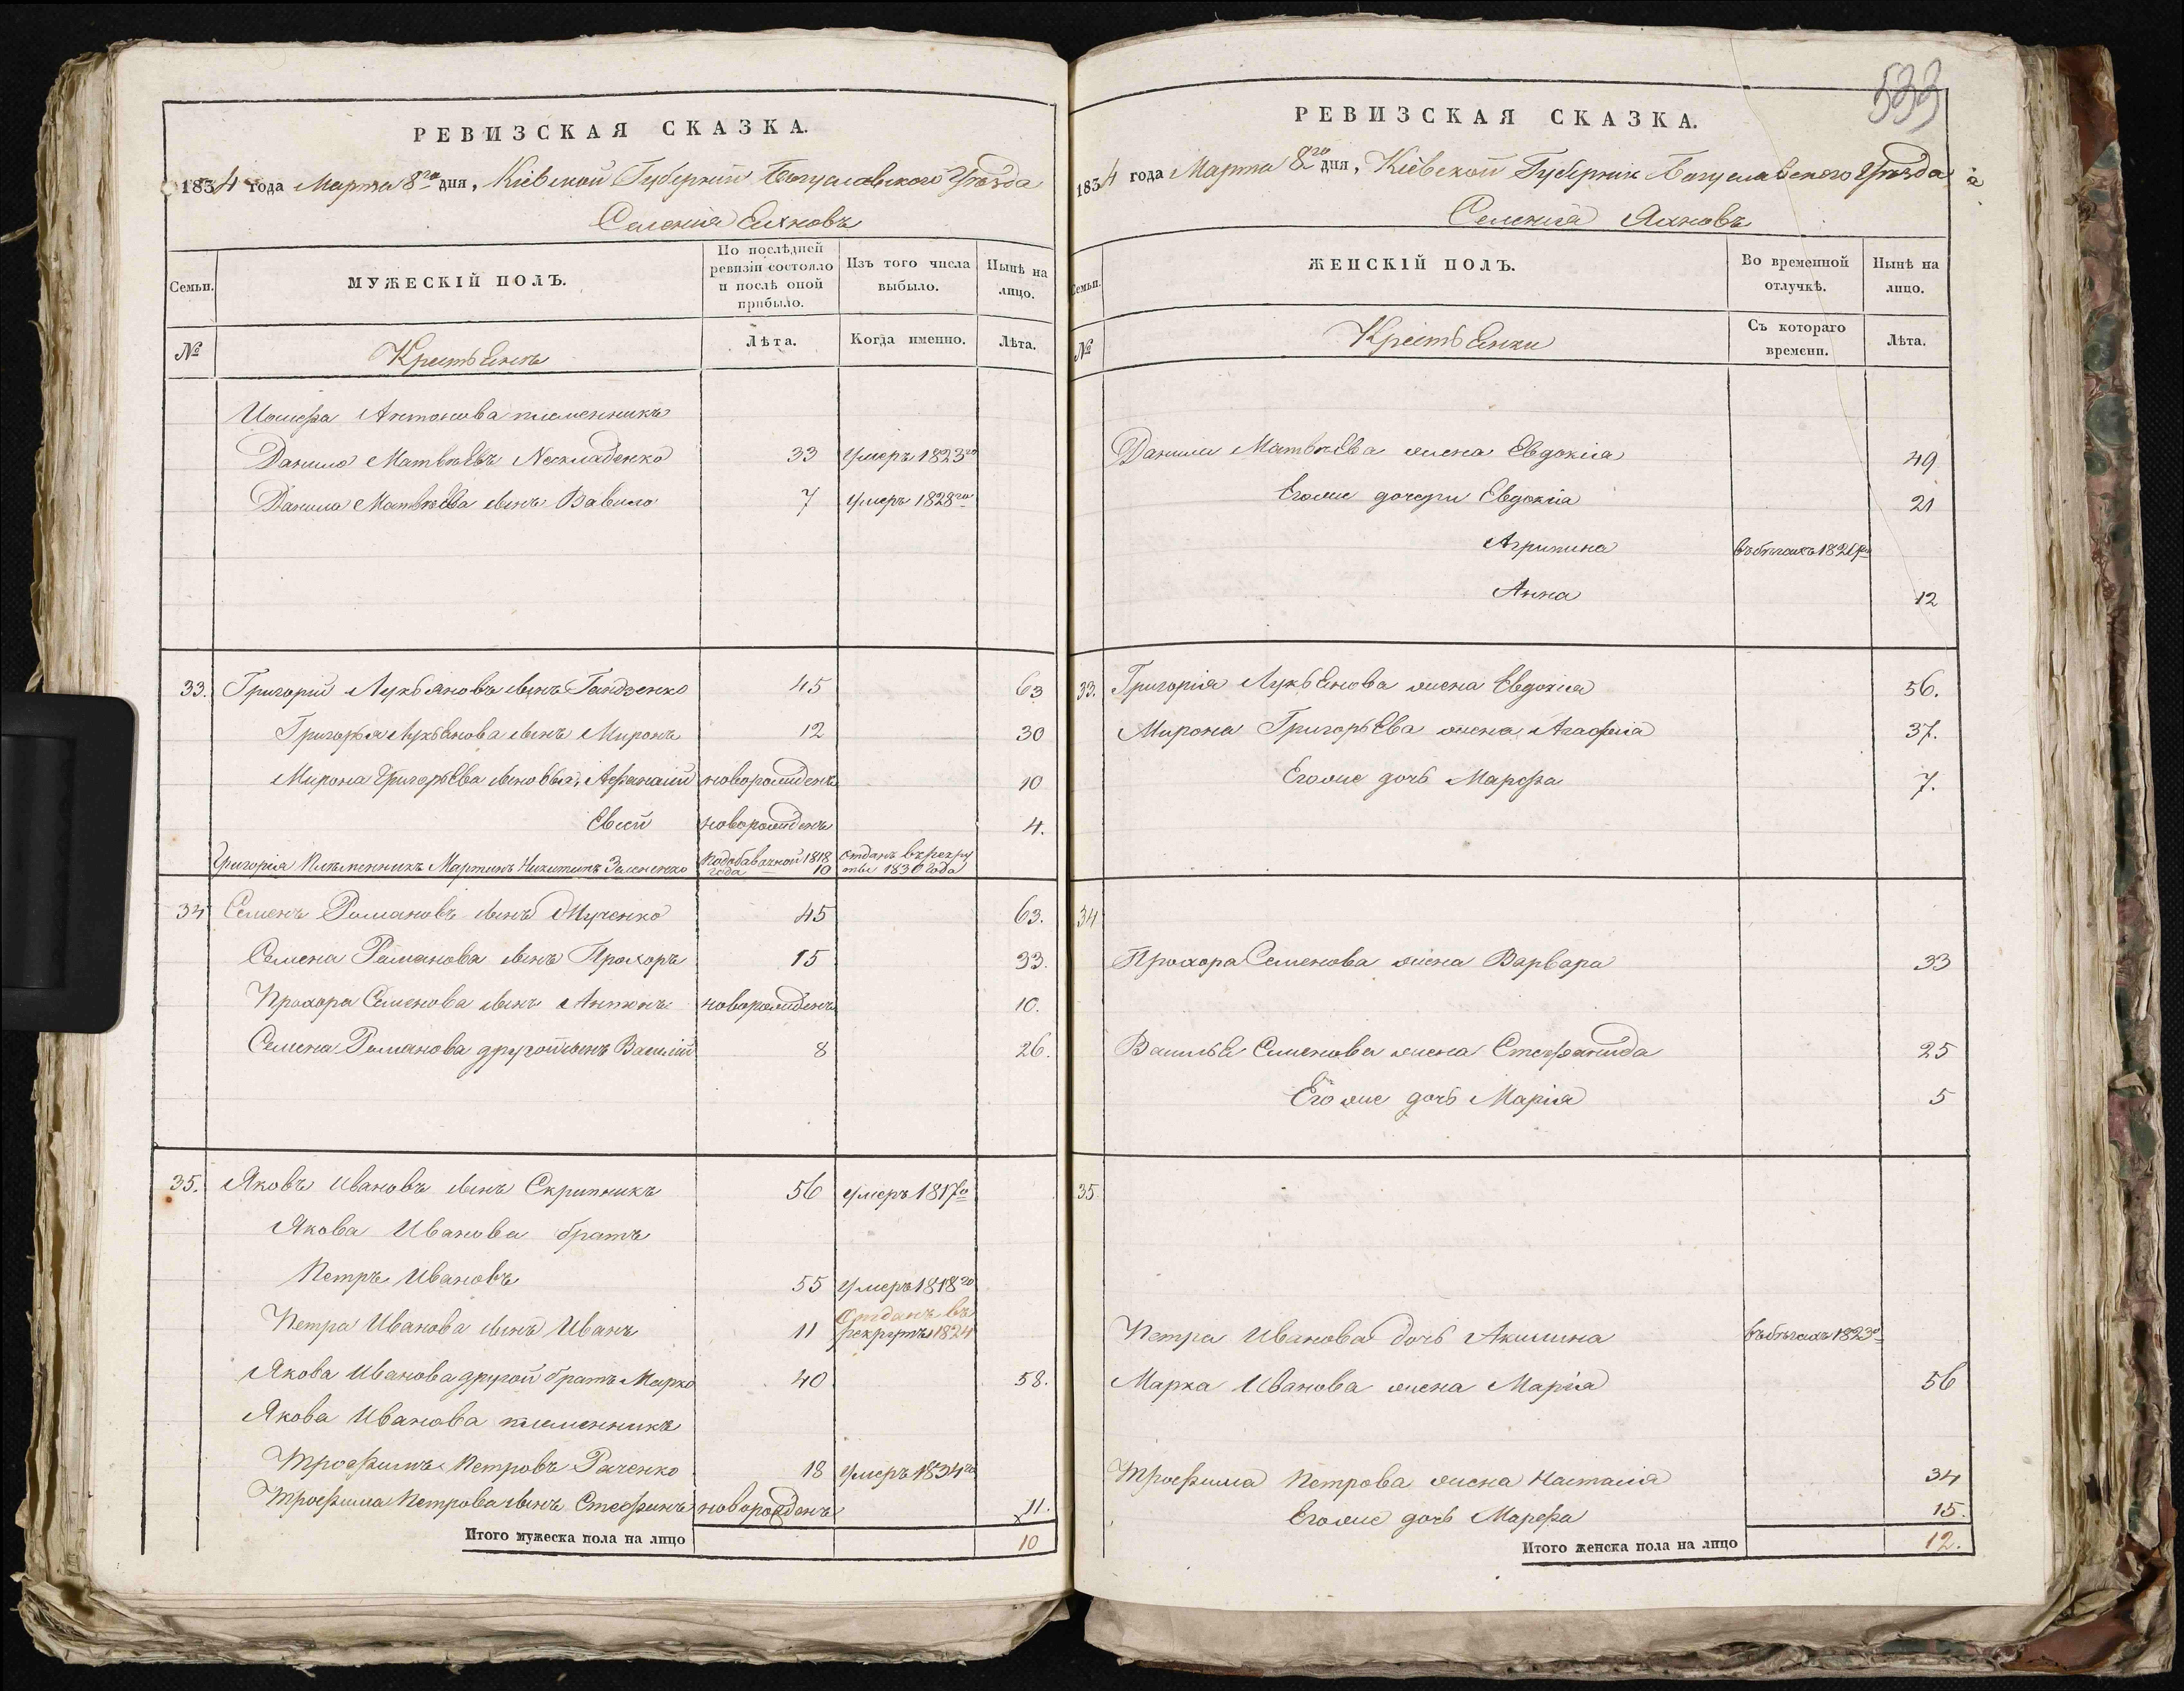 РЕВИЗСКАЯ СКАЗКА.
1834 года Марта 8го дня, Кіевской Губерніи Богуславского Уѣзда
Селенія Яхновъ
Семьи.
МУЖЕСКІЙ ПОЛЪ.
По послѣдней ревизіи состояло и послѣ оной прибыло.
Изъ того числа выбыло.
Нынѣ на лицо.
№
Крестьянъ
Лѣта.
Когда именно.
Лѣта.
Иосифа Антонова племенникъ
Данило Матвѣевъ Нескладенко 33 умеръ 1823го
Данила Матвѣева сынъ Вавило 7 умеръ 1828го
33. Григорій Лукьяновъ сынъ Гандзенко 45 63
Григорья Лукьянова сынъ Миронъ 12 30
Мирона Григорьева сыновья, Афанасій новорожденъ 10
Евсей новорожденъ 4.
Григорія Племенникъ Мартинъ Никитинъ Зеленско подобавачной 1818 года 10 отданъ врекруты 1830 года
34 Семенъ Романовъ сынъ 45 63.
Семена Романова сынъ Прохоръ 15 33.
Прохора Семенова сынъ Антонъ новорожденъ 10.
Семена Романова другой сынъ Василій 8 26.
35. Яковъ Ивановъ сынъ Скрипникъ 56 умеръ 1817го
Якова Иванова братъ
Петръ Ивановъ 55 умеръ 1818го
Петра Иванова сынъ Иванъ 11 Отданъ въ рекруты 1824
Якова Иванова другой братъ Марко 40 58.
Якова Иванова племенникъ
Трофимъ Петровъ Раченко 18 умеръ 1834го
Трофима Петрова сынъ Стефанъ новорожденъ 11.
Итого мужеска пола на лицо 10
533
РЕВИЗСКАЯ СКАЗКА.
1834 года Марта 8го дня, Кіевской Губерніи Богуславского Уѣзда
Селенія Яхновъ
Семьи.
ЖЕНСКІЙ ПОЛЪ.
Во временной отлучкѣ.
Нынѣ на лицо.
№
Крестьянки
Съ котораго времени.
Лѣта.
Данилы Матвѣева жена Евдокіа 49
Егоже дочери Евдокіа 21
Агрипина въбѣгахъ
Анна 12
33. Григорія Лукьянова жена Евдокіа 56.
Мирона Григорьева жена Агафіа 37.
Егоже дочь Марфа 7.
34
Прохора Семенова жена Варвара 33
Василья Семенова жена Стефанида 25
Егоже дочь Маріа 5
35
Петра Иванова дочь Акилина въбѣгахъ 1823го
Марка Иванова жена Маріа 56
Трофима Петрова жена Настасіа 34
Егоже дочь Марфа 15.
Итого женска пола на лицо 12.